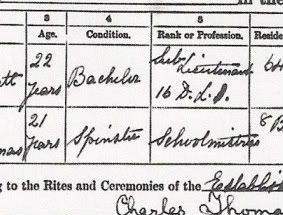 3 4 5
Age. Condition. Rank or Profession. Reside
22 years Bachelor Sub. Lieutenant
16 D.L.I.
21 years Spinster Schoolmistress 8 B
g to the Rites and Ceremonies of the Establis
Charles Thoma